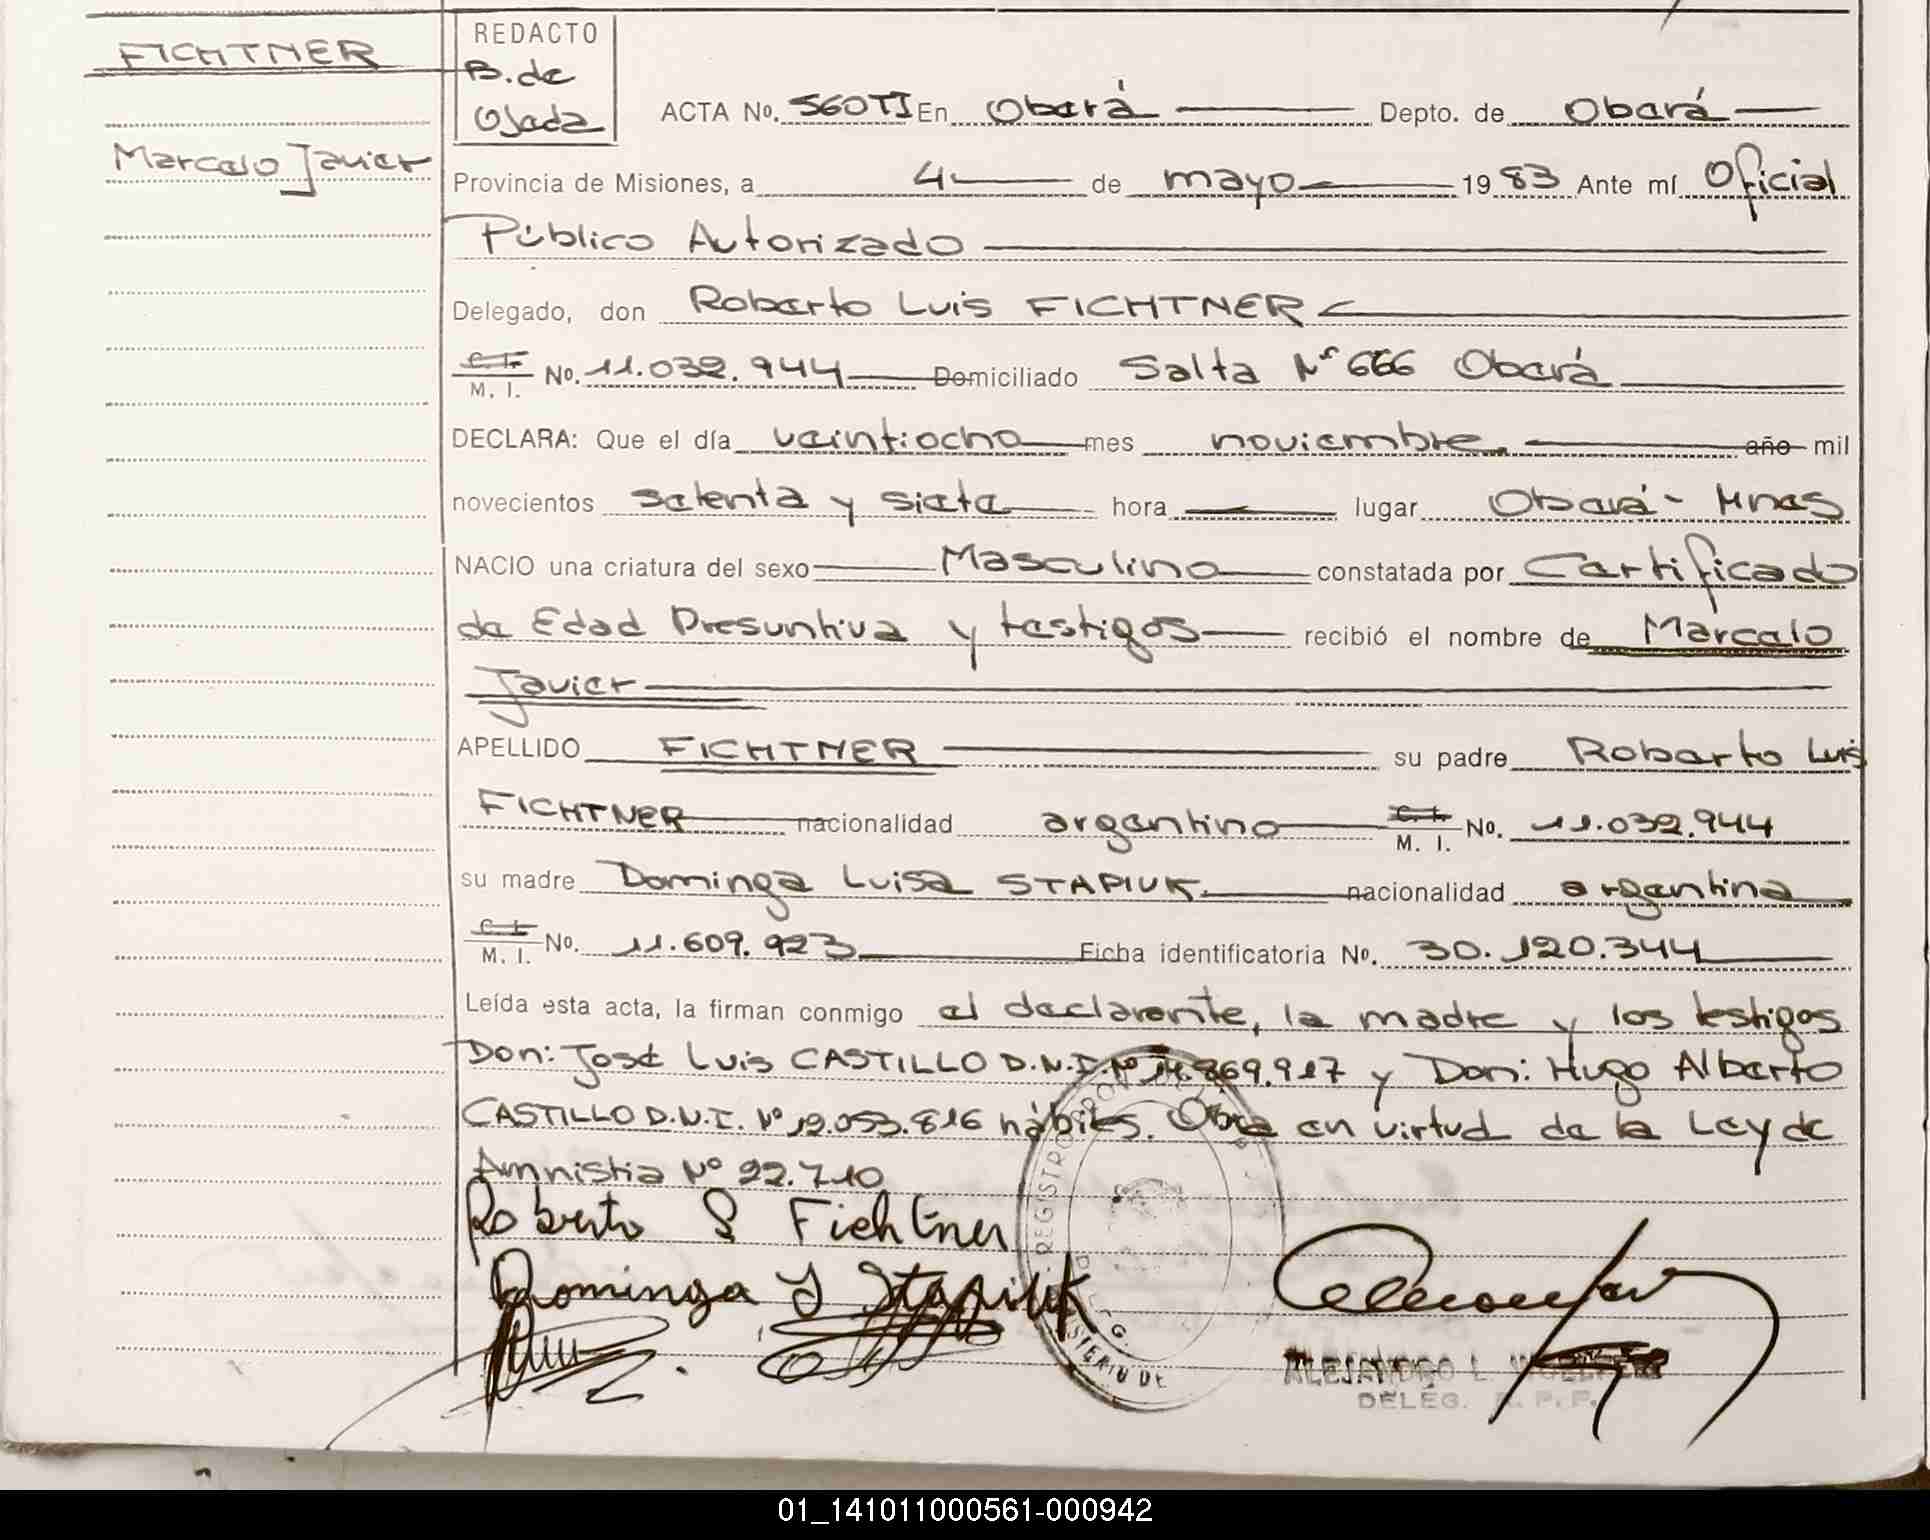 FICHTNER
Marcelo Javier
REDACTO
B. de
Ojeda
ACTA No. 560TI En Oberá Depto. de Oberá
Provincia de Misiones, a 4 de mayo 1983 Ante mí Oficial
Público Autorizado
Delegado, don Roberto Luis FICHTNER
C. I.
M. I. No. 11.032.944 Domiciliado Salta Nº 666 Oberá
DECLARA: Que el día veintiocho mes noviembre, año mil
novecientos setenta y siete hora lugar Oberá - Mnes
NACIO una criatura del sexo Masculino constatada por Certificado
de Edad Presuntiva y testigos recibió el nombre de Marcelo
Javier
APELLIDO FICHTNER su padre Roberto Luis
FICHTNER nacionalidad argentino C. I. M. I. No. 11.032.944
su madre Dominga Luisa STAPIUK nacionalidad argentina
C. I.
M. I. No. 11.609.923 Ficha identificatoria No. 30.120.344
Leída esta acta, la firman conmigo el declarante, la madre y los testigos
Don: José Luis CASTILLO D.N.I. Nº 14.869.917 y Don: Hugo Alberto
CASTILLO D.N.I. Nº 12.053.816 hábiles. Obra en virtud de la Ley de
Amnistia Nº 22.710
Roberto L Fichtner
Dominga L Stapiuk
REGISTRO
MINISTERIO DE
ALEJANDRO L.
DELEG. R. P. P.
01_141011000561-000942